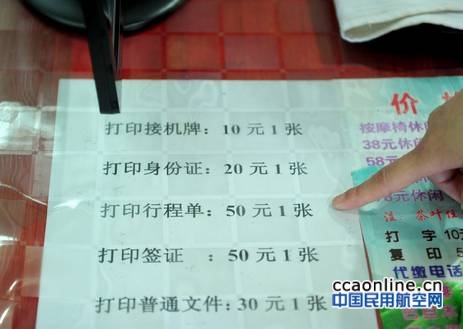 打印接机牌：10 元 1 张
打印身份证：20 元 1 张
打印行程单：50 元 1 张
打印签证 ：50 元 1 张
打印普通文件：30 元 1 张
价
按摩椅休
38元休闲
58元
元休闲
注：茶叶
打 字 10元
复 印
代缴电话
ccaonline.cn
中国民用航空网